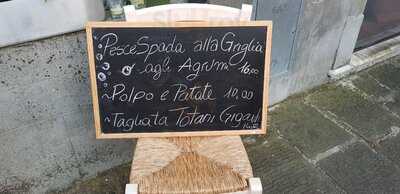 Pesce Spada alla Griglia
o agli Agrumi 16,00
~ Polpo e Patate 10,00
~ Tagliata Totani Giganti